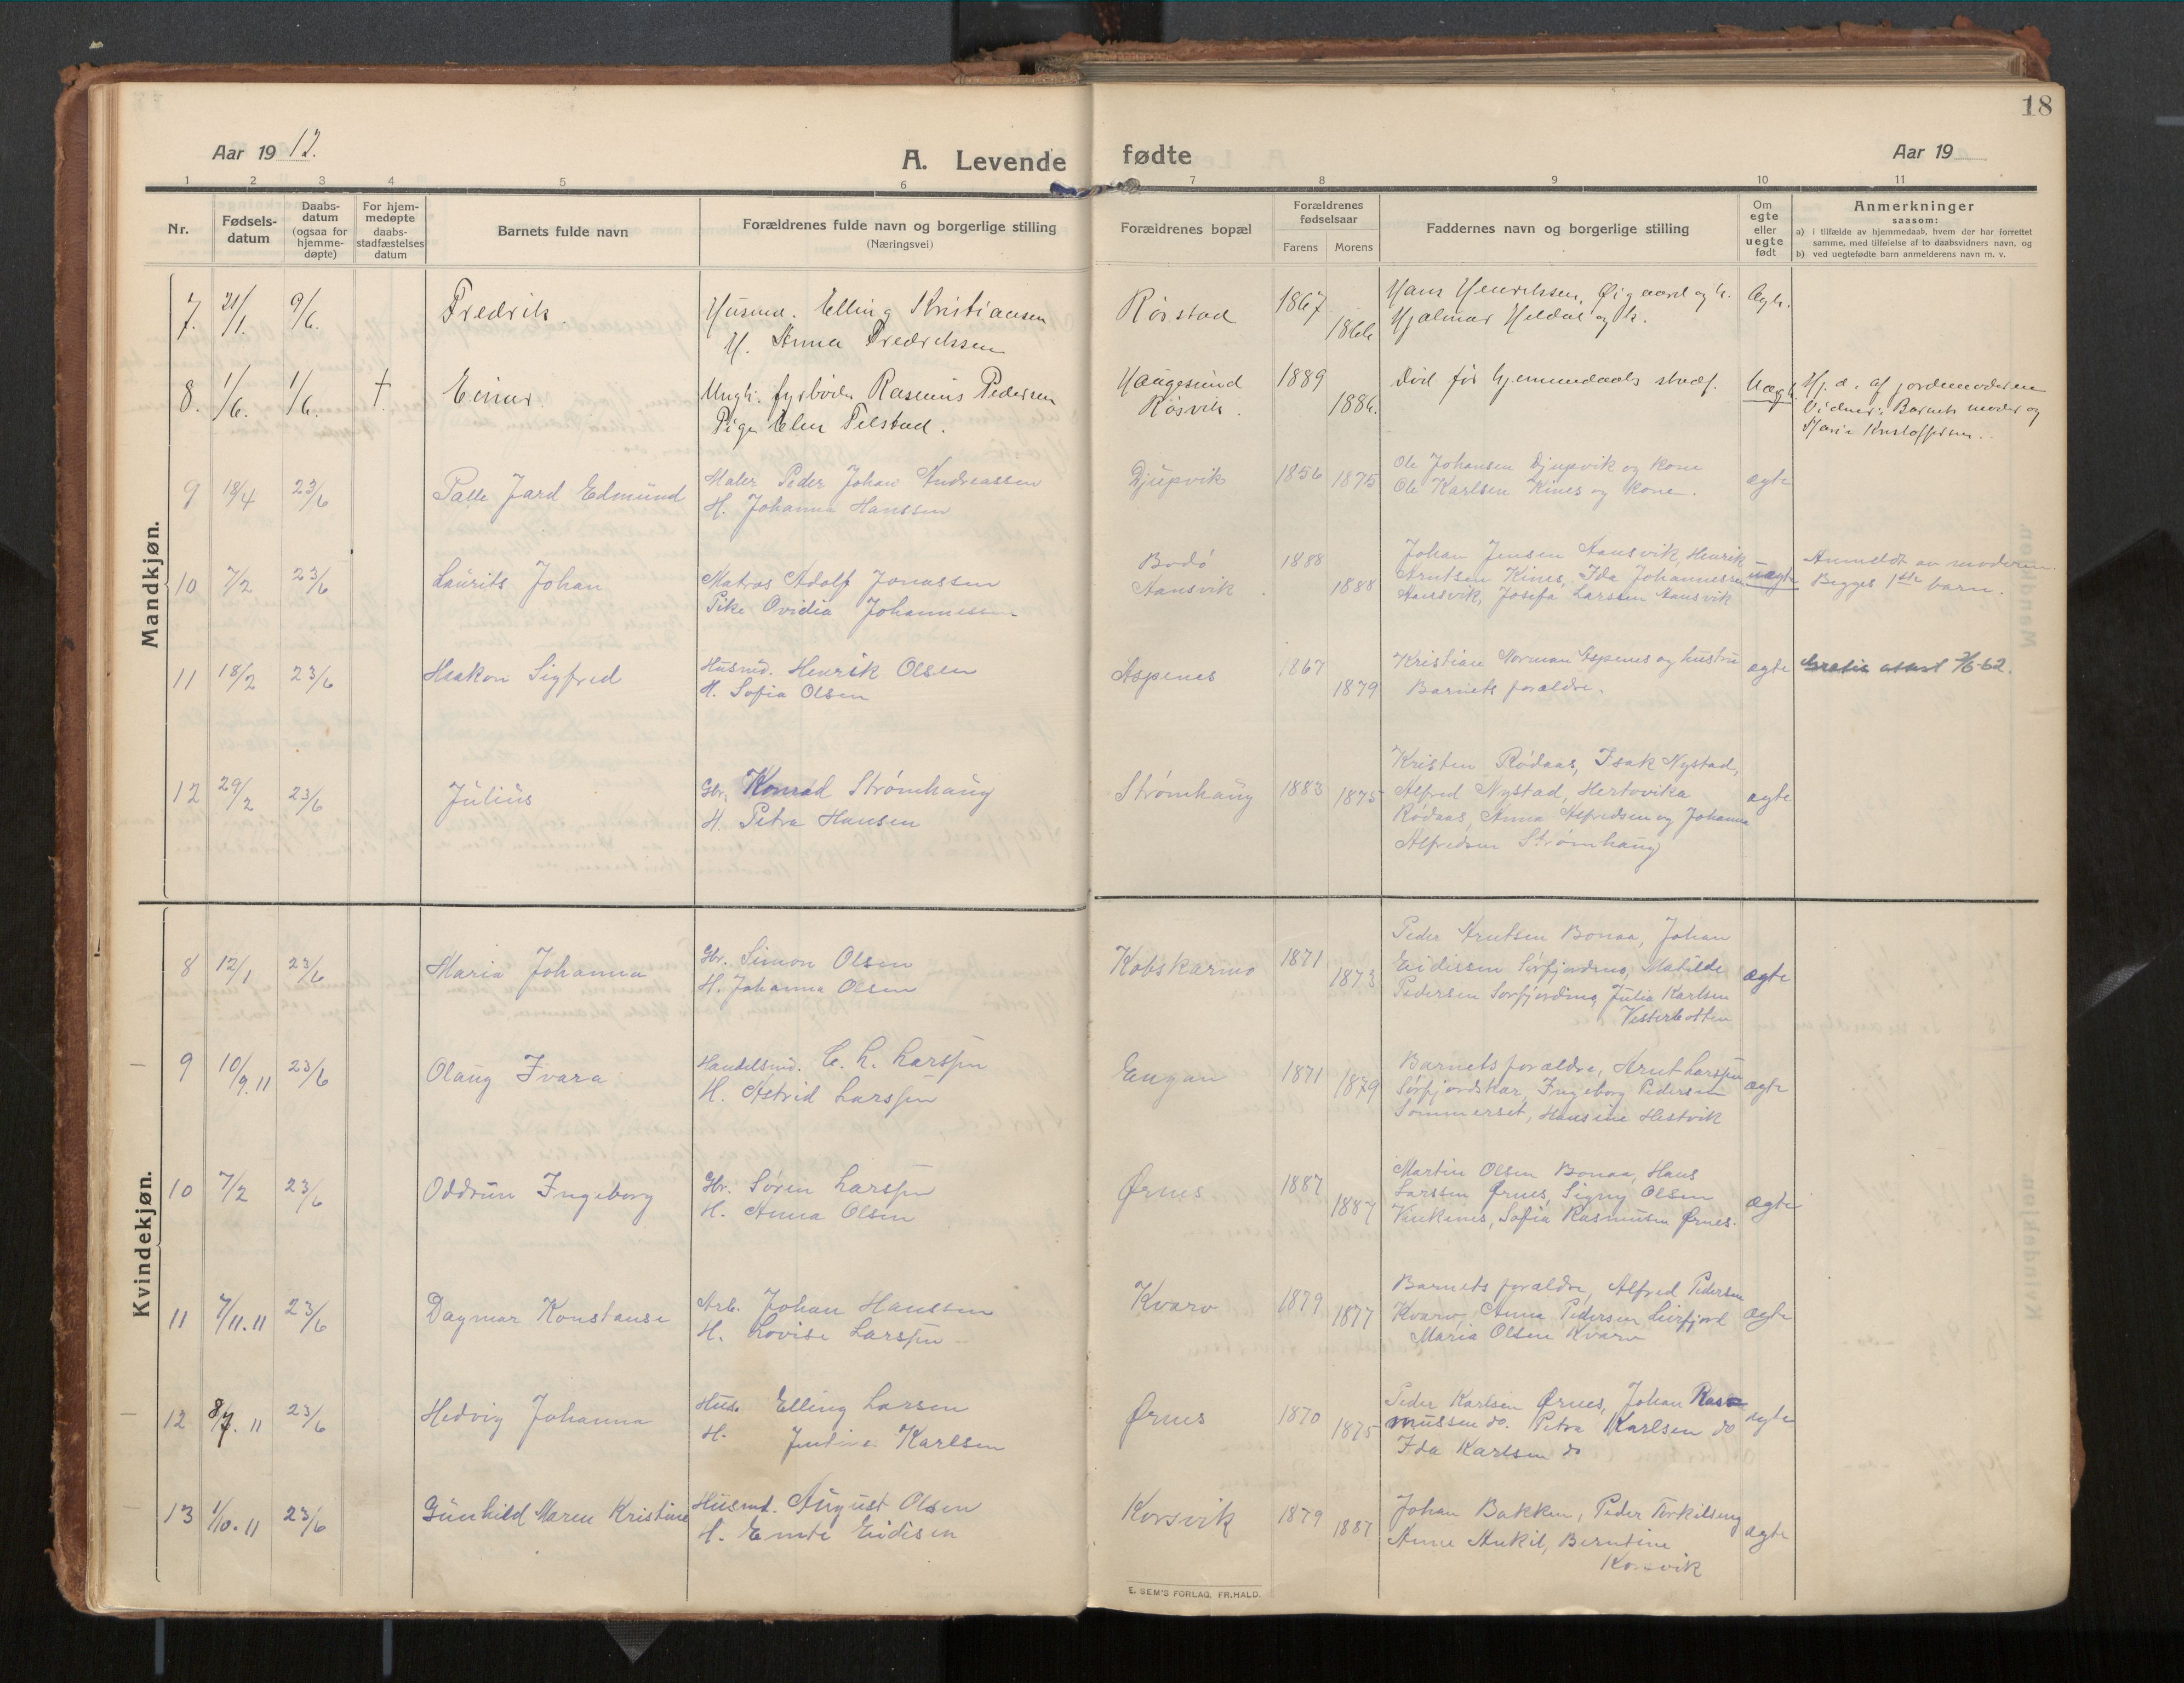 18
Aar 19 12.
A. Levende fødte
Aar 19
1 2 3 4 5 6 7 8 9 10 11
Nr.
Fødsels-datum
Daabs-datum (ogsaa for hjemme-døpte)
For hjem-medøpte daabs-stadfæstelses datum
Barnets fulde navn
Forældrenes fulde navn og borgerlige stilling
(Næringsvei)
Forældrenes bopæl
Forældrenes fødselsaar
Farens Morens
Faddernes navn og borgerlige stilling
Om egte eller uegte født
Anmerkninger
saasom:
a) i tilfælde av hjemmedaab, hvem der har forrettet
samme, med tilføielse af to daabsvidners navn, og
b) ved uegtefødte barn anmelderens navn m. v.
Mandkjøn.
7. 21/1. 9/6. Fredrik. Husmd. Elling Kristiansen Rørstad 1867 Hans Henriksen, Øigaard og h. Ægte.
H. Anna Fredriksen 1866 Hjalmar Heldal og h.
8. 1/6. 1/6. † Einar. Ungk. fyrbøder Rasmus Pedersen Haugesund 1889 Død før hjemmedaabs stadf. Uægte. Hj. d. af jordemoderen
Pige Elen Tilstad. Røsvik. 1886. Vidner: Barnets moder og
Maria Kristoffersen.
9 18/4 23/6 Palle Jard Edmund Maler Peder Johan Andreassen Djupvik 1856 1875 Ole Johansen Djupvik og kone ægte
H. Johanna Hanssen Ole Karlsen Kines og kone.
10 7/2 23/6 Laurits Johan Matros Adolf Jonassen Bodø 1888 Johan Jensen Aansvik, Henrik uægte Anmeldt av moderen.
Pike Ovidia Johannessen Aansvik. 1888 Arntsen Kines, Ida Johannessen Begges 1ste barn.
Aansvik, Josefa Larssen Aansvik
11 18/2 23/6 Haakon Sigfred Husmd. Henrik Olsen Aspenes 1867 Kristian Norman Espenes og hustru ægte Gratis attest 7/6-62.
H. Sofia Olsen 1879 Barnets forældre.
12 29/2 23/6 Julius Gbr. Konrad Strømhaug Strømhaug 1883 1875 Kristen Rødaas, Isak Nystad, ægte
H. Petra Hansen Alfred Nystad, Hertovika
Rødaas, Anna Alfredsen og Johanna
Alfredsen Strømhaug
Kvindekjøn.
8 12/1 23/6 Maria Johanna Gbr. Simon Olsen Kobskarmo 1871 Peder Arntsen Bonaa, Johan ægte
H. Johanna Olsen 1873 Eidissen Sørfjordmo, Matilde
Pedersen Sørfjordmo, Julia Karlsen
Vesterbotten
9 10/9.11 23/6 Olaug Ivara Handelsmd. C. L. Larssen Engan 1871 Barnets forældre, Arnt Larssen ægte
H. Astrid Larssen 1879 Sørfjordskar, Ingeborg Pedersen
Sommerset, Hansine Hestvik
10 7/2 23/6 Oddrun Ingeborg Gbr. Søren Larssen Ørnes 1887 Martin Olsen Bonaa, Hans ægte
H. Anna Olsen 1887 Larssen Ørnes, Signy Olsen
Vinkenes, Sofia Rasmussen Ørnes.
11 7/11.11 23/6 Dagmar Konstanse Arb. Johan Hanssen Kvarv 1879 Barnets forældre, Alfred Pedersen ægte
H. Lovise Larssen 1877 Kvarv, Anna Pedersen Leirfjord
Maria Olsen Kvarv
12 8/7.11 23/6 Hedvig Johanna Hus. Elling Larsen Ørnes 1870 Peder Karlsen Ørnes, Johan Ras- ægte
H. Justine Karlsen 1875 mussen do. Petra Karlsen do
Ida Karlsen do
13 1/10.11 23/6 Gunhild Maren Kristine Husmd. August Olsen Korsvik 1879 Johan Bakken, Peder Torkilseng ægte
H. Emte Eidisen 1887 Anne Aukil, Berntine
Korsvik
E. SEM'S FORLAG, FR.HALD.